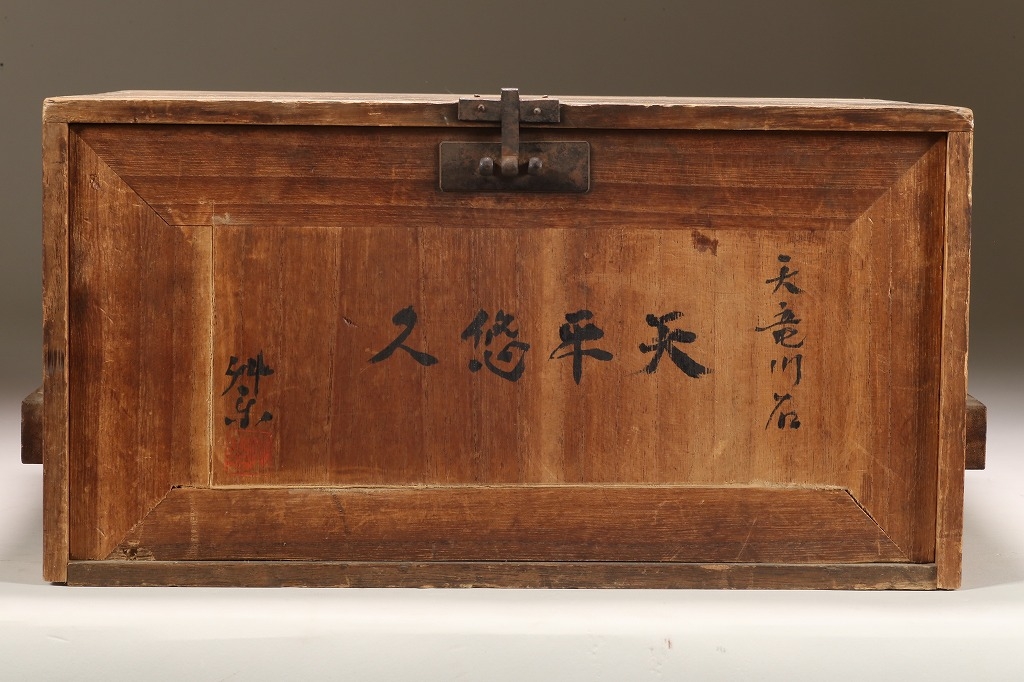 天竜川石
天平悠久